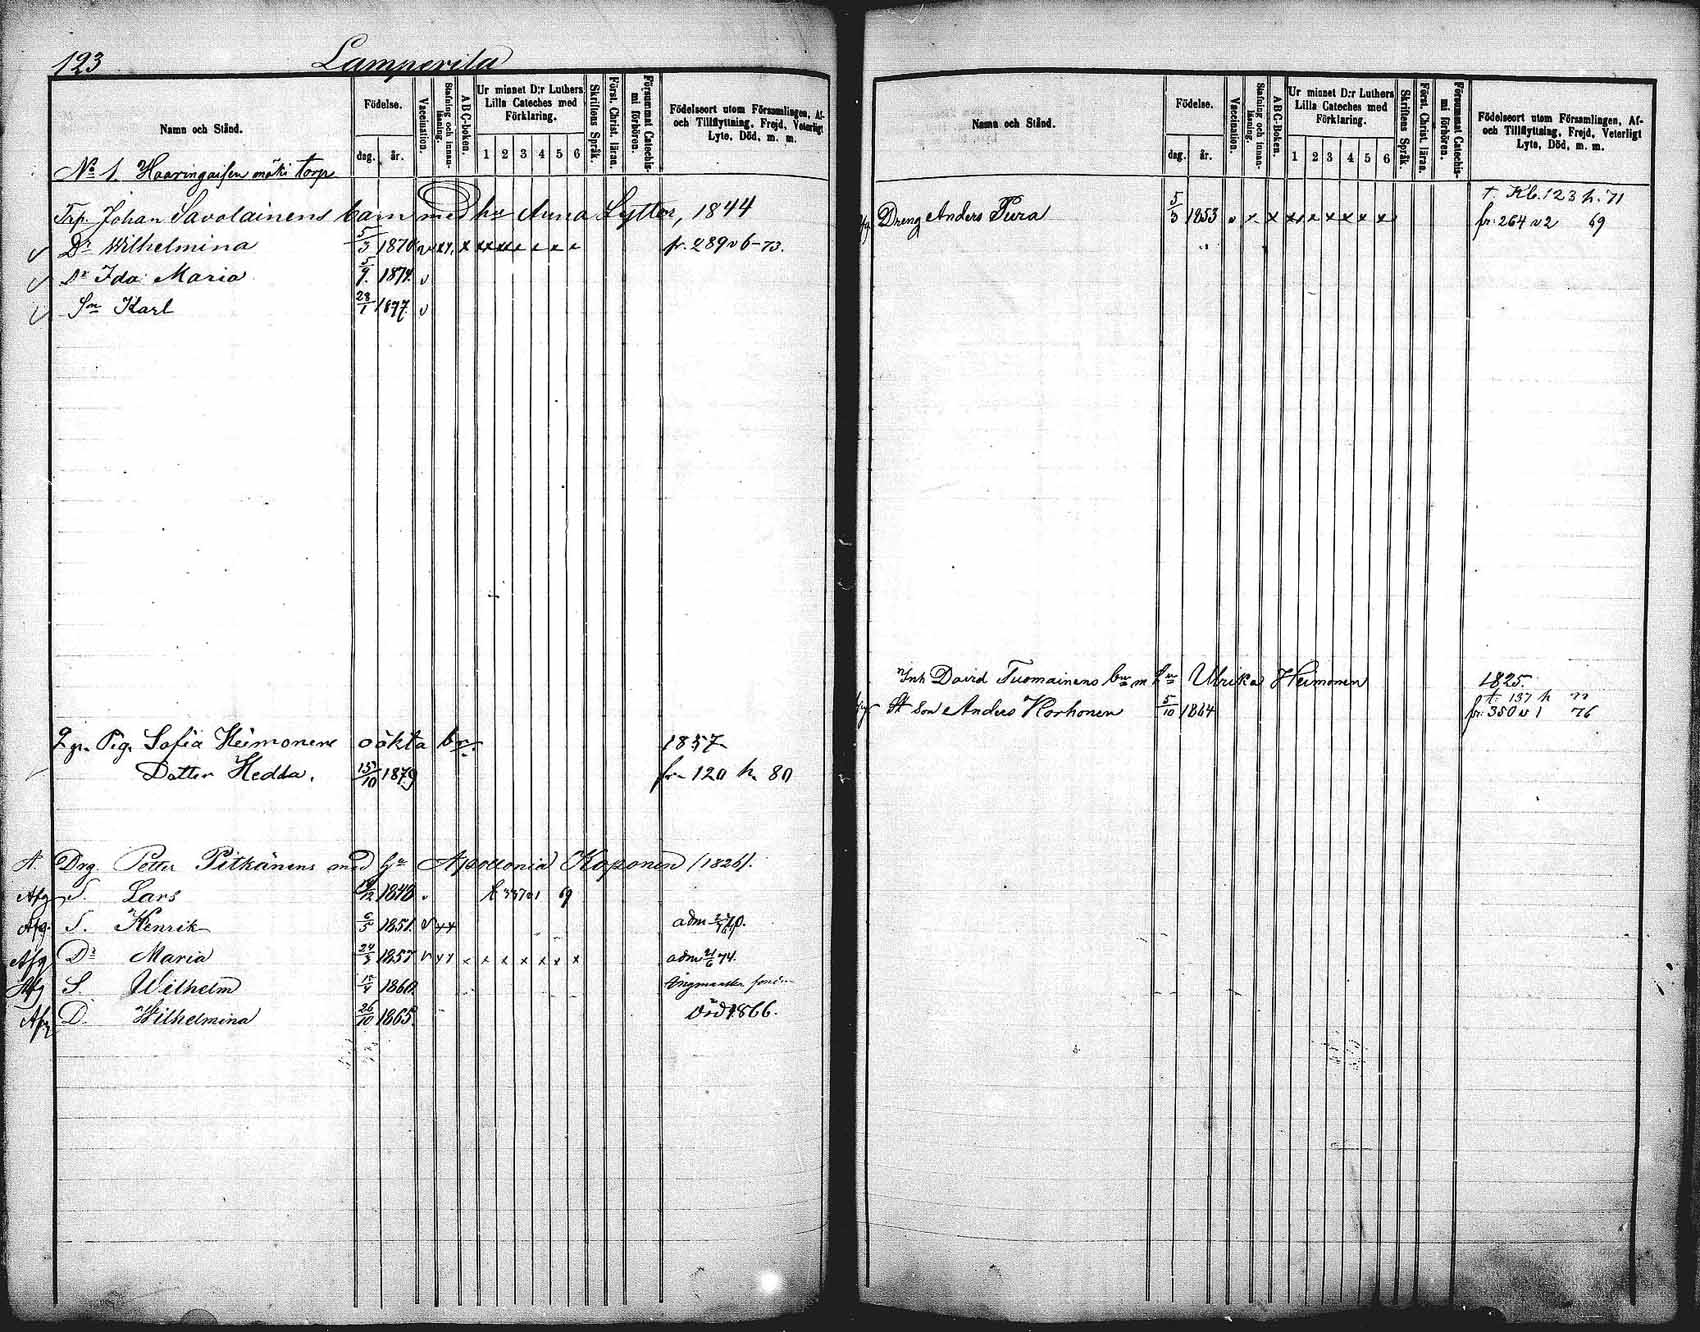 123 Lamperila
Namn och Stånd.
Födelse.
dag. år.
Vaccination.
Stafning och innan-läsning.
ABC-boken.
Ur minnet D:r Luthers Lilla Cateches med Förklaring.
1 2 3 4 5 6
Skriftens Språk.
Först. Christ. läran.
Försummat Catechis-mi förhören.
Födelseort utom Församlingen, Af- och Tillflyttning, Frejd, Veterligt Lyte, Död, m. m.
No 1. mäki torp
Trp. Johan Savolainens barn med hu Anna Lytter, 1844
Dr Wilhelmina 5/3 1870 v x x x x x x x x fr. 289 v 6-73.
Dr Ida Maria 5/9. 1874. v
Sn Karl 28/1 1877. v
2 Pig. Sofia Heimonens oäkta br. 1857
Dotter Hedda. 15/10 1879 fr. 120 h 80
Drg. Petter Pitkänens med hu Apollonia Koponen (1826).
Afg. S. Lars /12 1848 v 69
Afg. S. Henrik 6/5 1851. v x x adm
Afg Dr Maria 24/3 1857 v x x x x x x x x x adm 21/6 74.
Afg S. Wilhelm 1860.
Afg D. Wilhelmina 26/10 1865. död 1866.
Namn och Stånd.
Födelse.
dag. år.
Vaccination.
Stafning och innan-läsning.
ABC-Boken.
Ur minnet D:r Luthers Lilla Cateches med Förklaring.
1 2 3 4 5 6
Skriftens Språk.
Först. Christ. läran.
Försummat Catechis-mi förhören.
Födelseort utom Församlingen, Af- och Tillflyttning, Frejd, Veterligt Lyte, Död, m. m.
t. Kb. 123 h. 71
Dreng Anders Pura 5/3 1853 v x x x x x x x x fr. 264 v 2 69
Inh David Tuomainens bn m hu Ulrika Heimonen 1825.
t. 137 h 77
son Anders Korhonen 5/10 1864 fr. 350 v 1 76